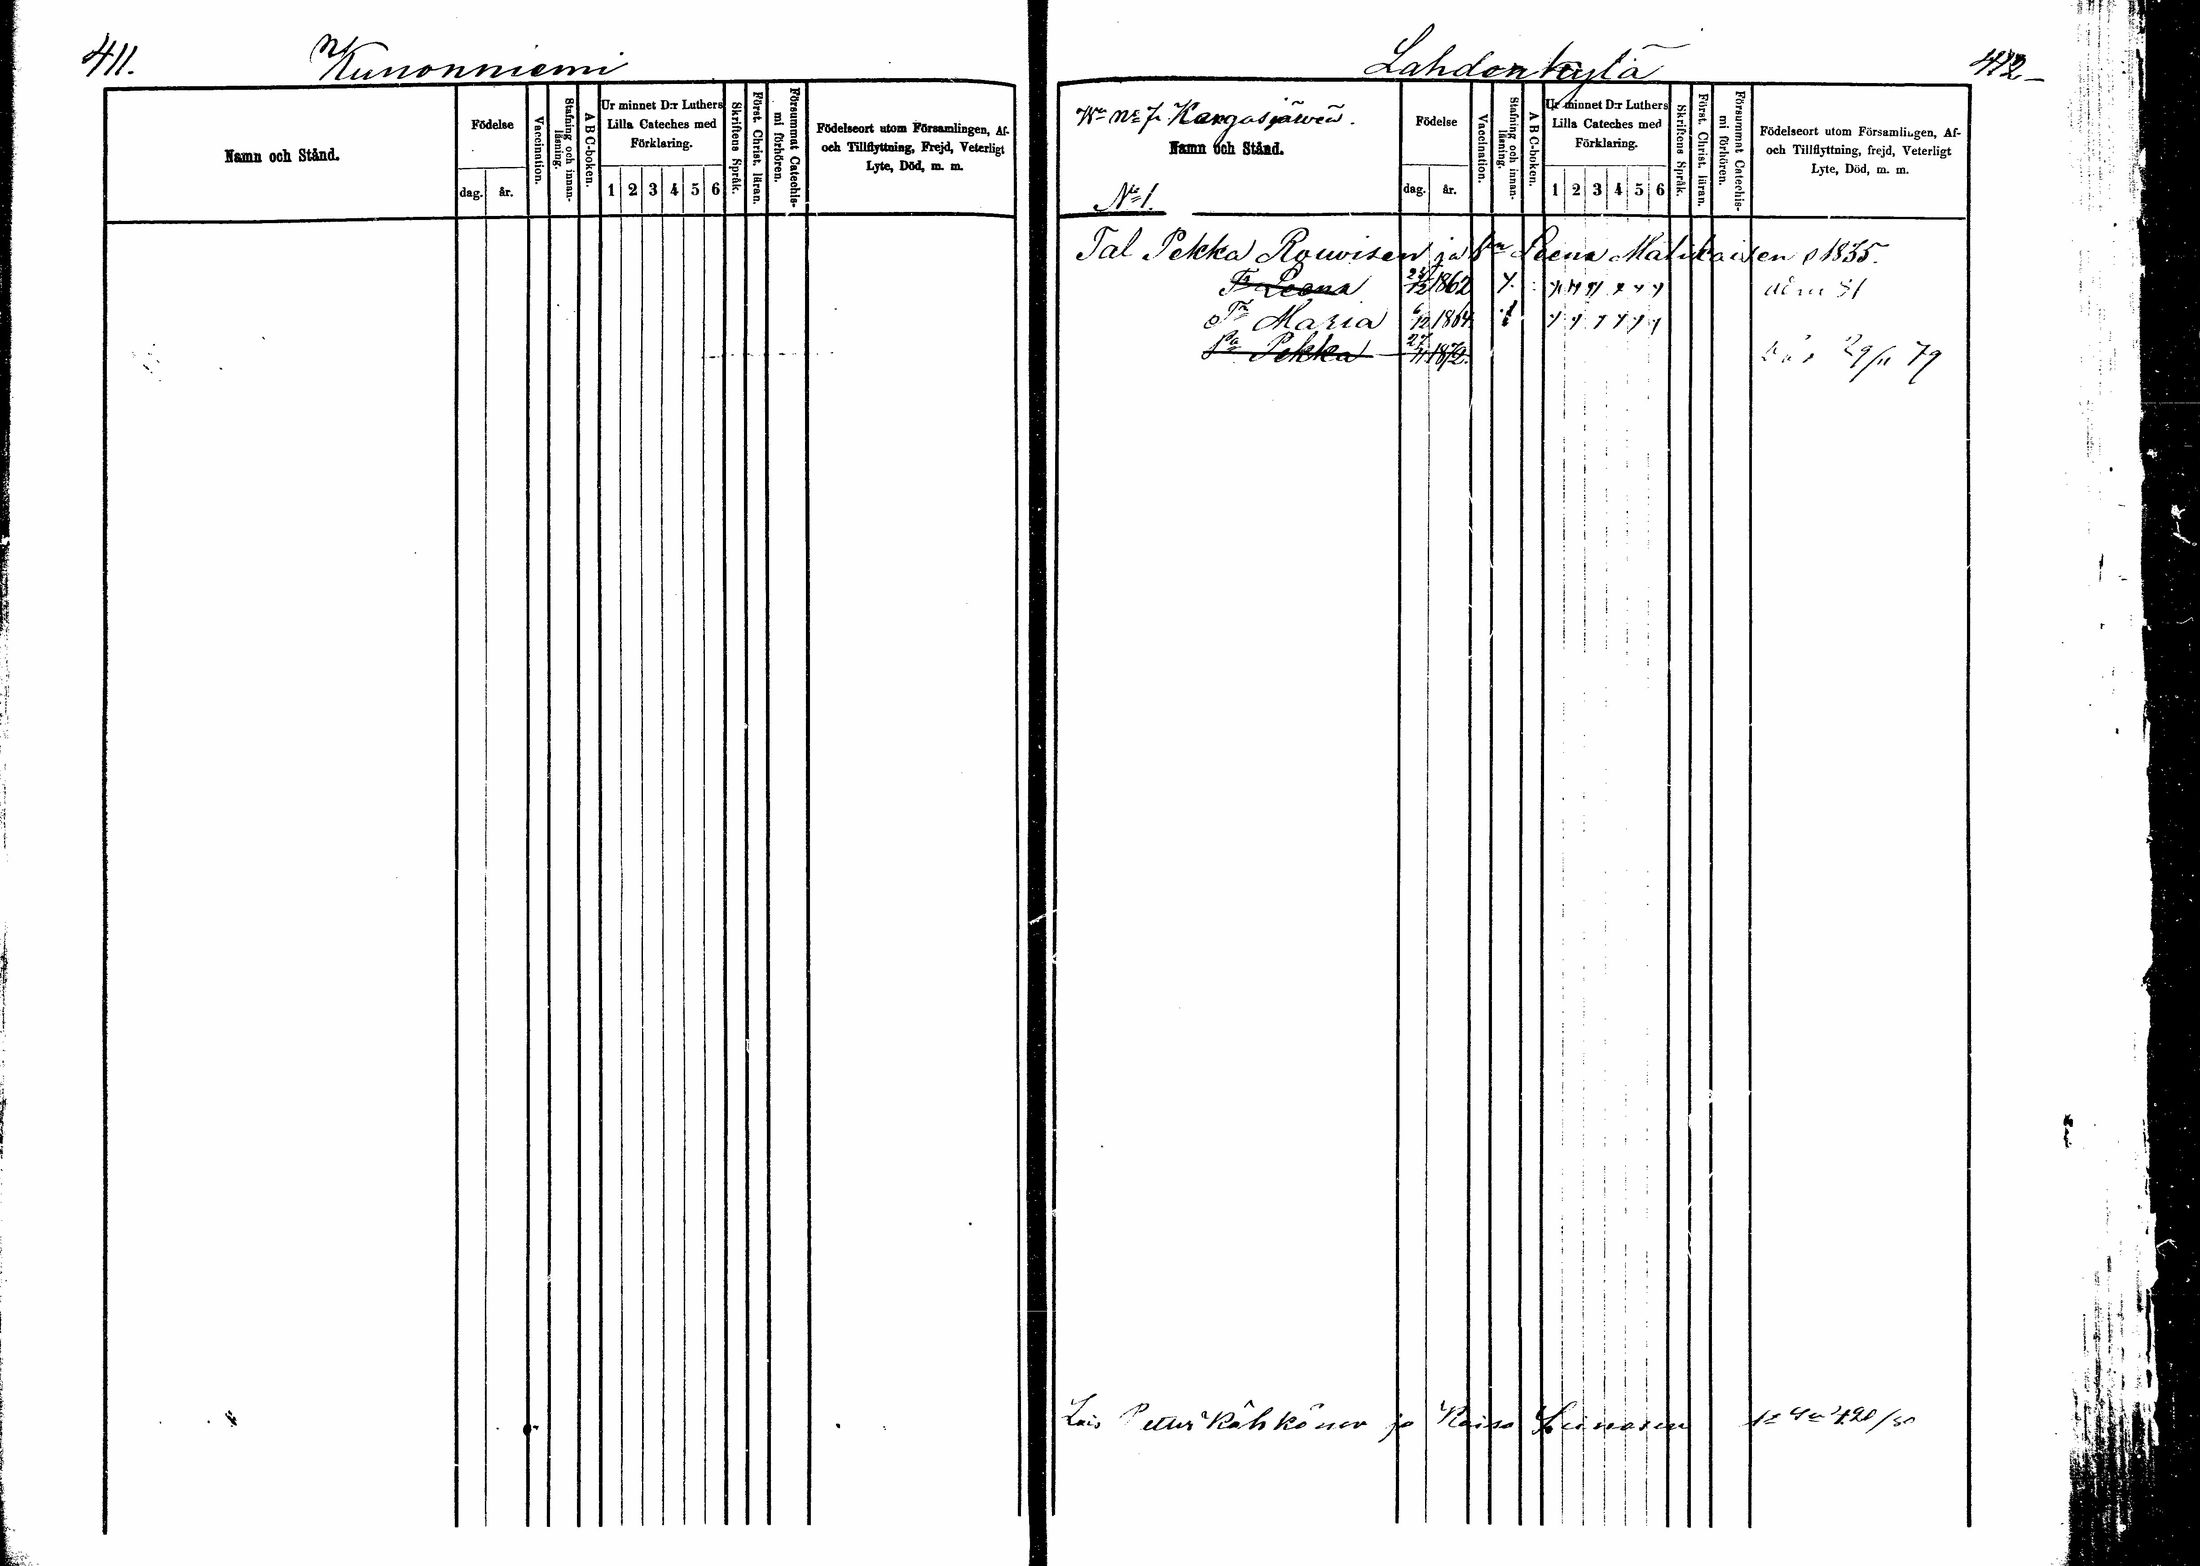 411.
Kunonniemi
Namn och Stånd.
Födelse
dag. år.
Vaccination.
Stafning och innan-läsning.
A B C-boken.
Ur minnet D:r Luthers
Lilla Cateches med
Förklaring.
1 2 3 4 5 6
Skriftens Språk.
Först. Christ. läran.
Försummat Catechis-mi förhören.
Födelseort utom Församlingen, Af-
och Tillflyttning, Frejd, Veterligt
Lyte, Död, m. m.
Lahdenkylä
412
Kangasjärwen.
Namn och Stånd.
No 1.
Födelse
dag. år.
Vaccination.
Stafning och innan-läsning.
A B C-boken.
Ur minnet D:r Luthers
Lilla Cateches med
Förklaring.
1 2 3 4 5 6
Skriftens Språk.
Först. Christ. läran.
Försummat Catechis-mi förhören.
Födelseort utom Församlingen, Af-
och Tillflyttning, frejd, Veterligt
Lyte, Död, m. m.
Tal Pekka Rouvisen ja Leena Matikaisen 1835.
Tr Leena 1862
Tr Maria 6/12 1864
Pa Pekka 27/11 1872. 29/11 79
Lois Petter Kähkönen ja Kaisa